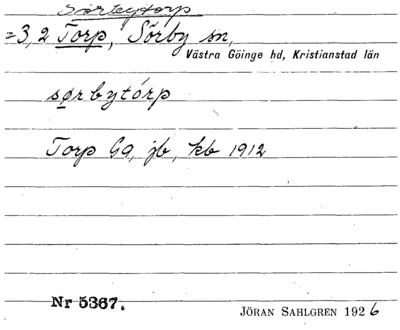 Sörbytorp
=3,2 Torp, Sörby sn,
Västra Göinge hd, Kristianstad län
sørbytórp
Torp Ga, jb, kb 1912
Nr 5367.
JÖRAN SAHLGREN 1926